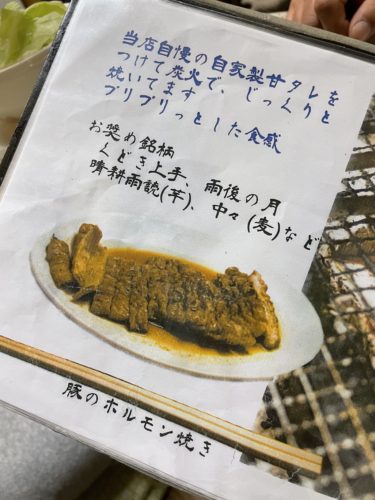 当店自慢の自家製甘タレを
つけて炭火で、じっくりと
焼いてます
プリプリっとした食感
お奨め銘柄
くどき上手、雨後の月
晴耕雨読(芋)、中々(麦)など
豚のホルモン焼き